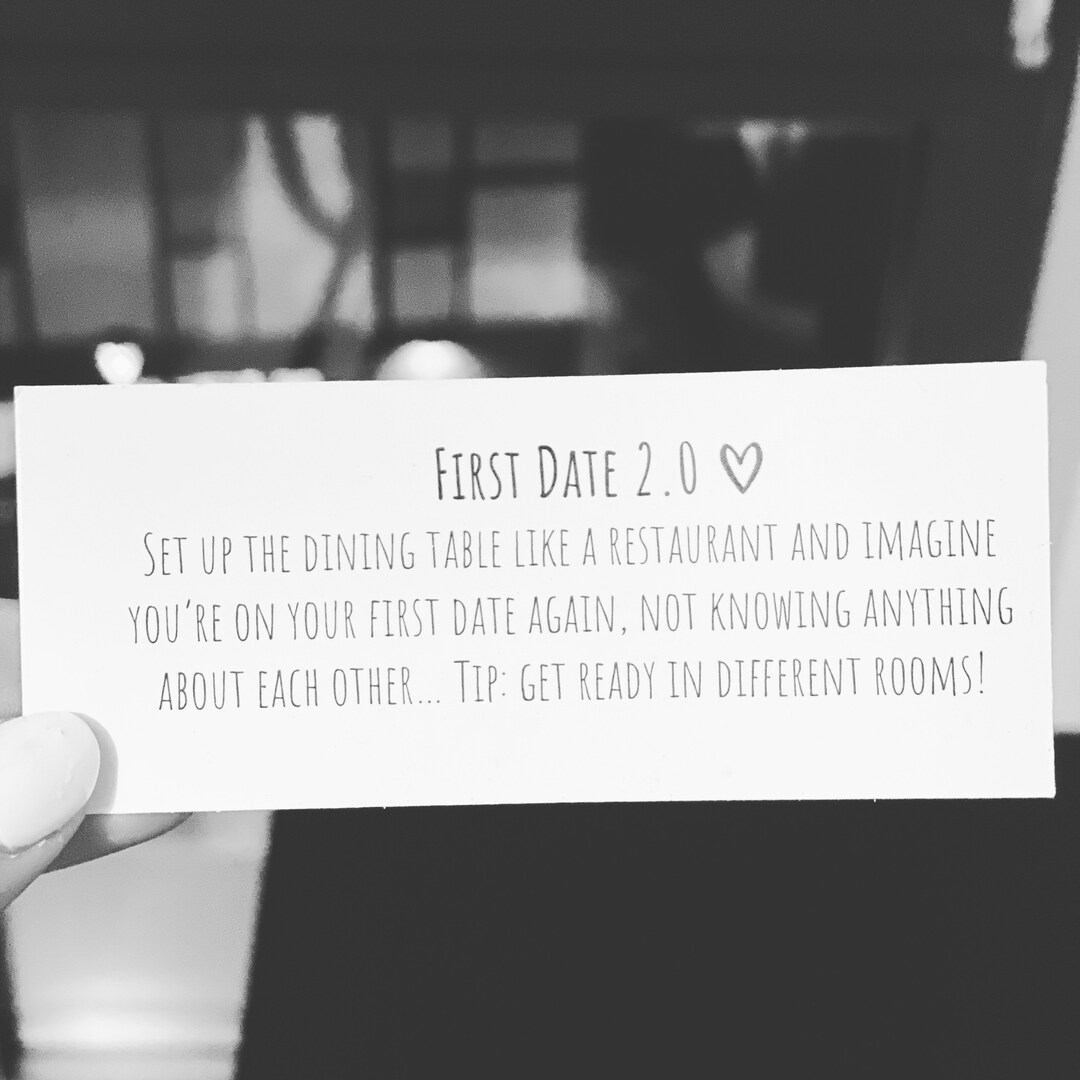 First Date 2.0 ♡
Set up the dining table like a restaurant and imagine
you're on your first date again, not knowing anything
about each other... Tip: get ready in different rooms!